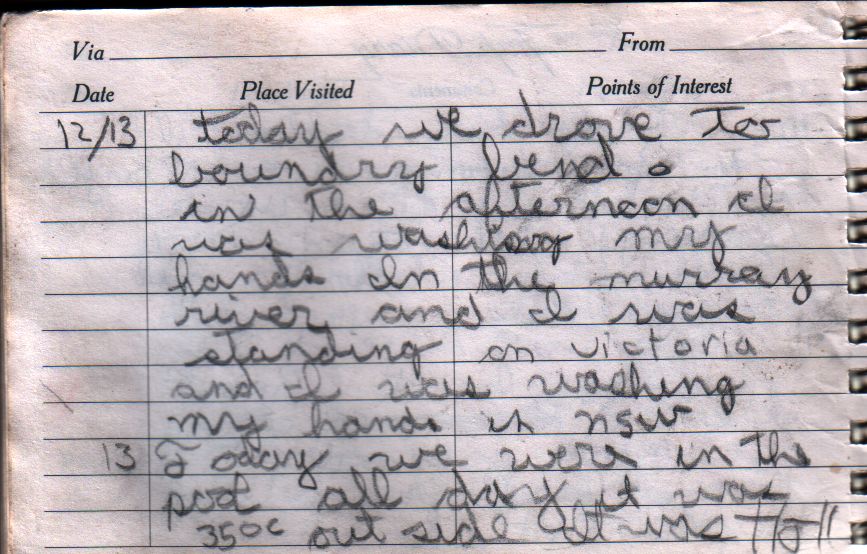 Via From
Date Place Visited Points of Interest
12/13 today we drove to
boundry bend.
in the afternoon I
was washing my
hands In the murray
river and I was
standing on victoria
and I was washing
my hands in nsw
13 Today we were in the
pool all day it was
35°c out side It was Hot!!